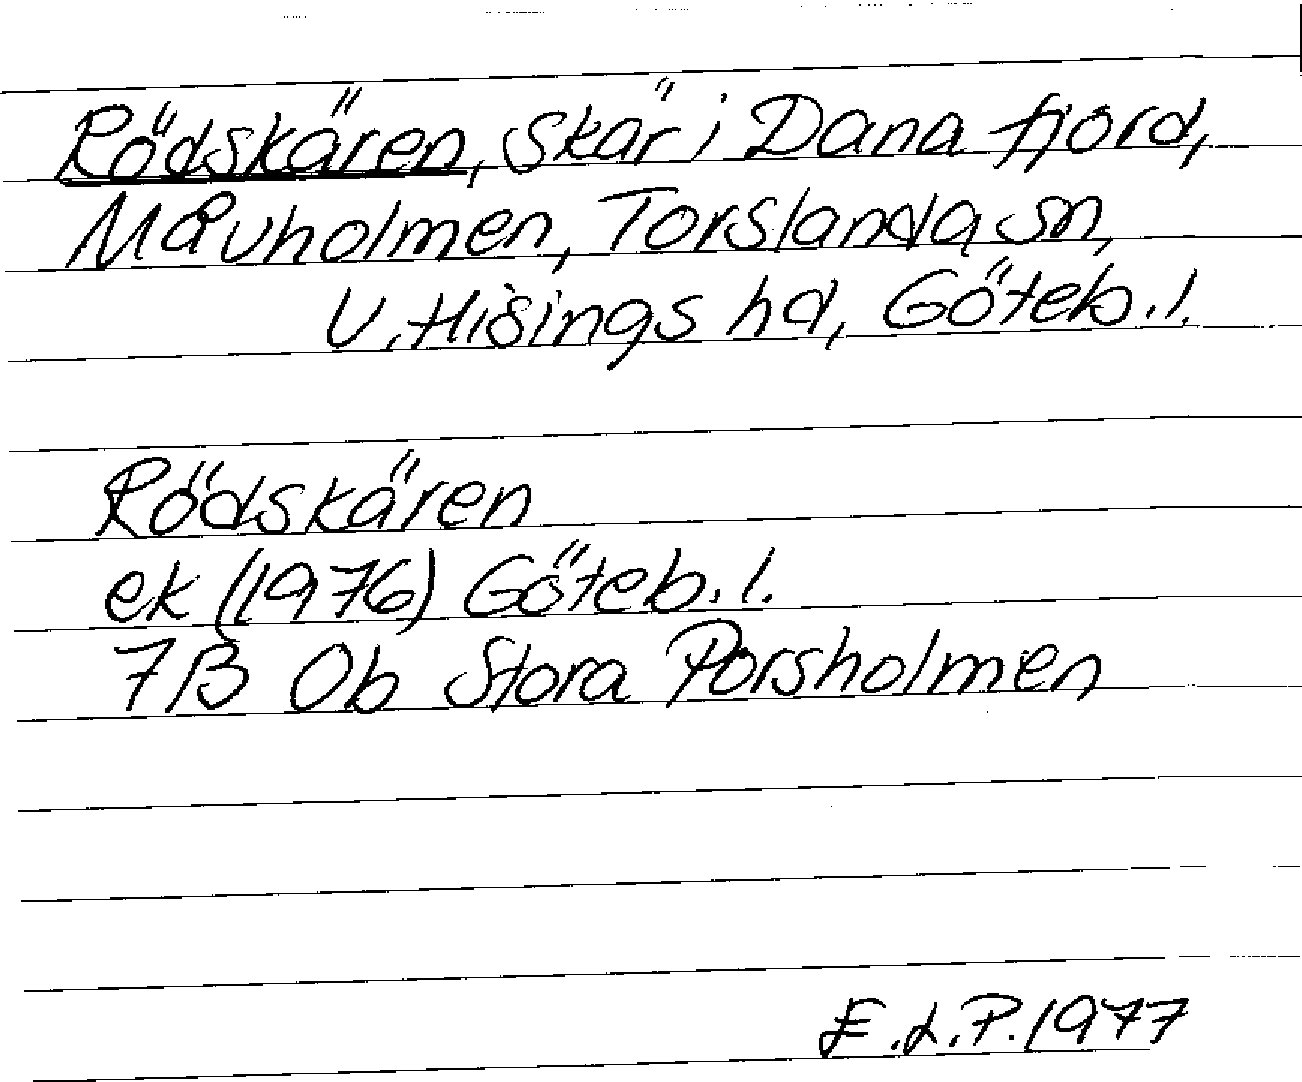 Rödskären, skär i Dana fjord,
Måvholmen, Torslanda sn,
V. Hisings hd, Göteb. l.
Rödskären
ek (1976) Göteb. l.
7B 0b Stora Porsholmen
E.L.P. 1977